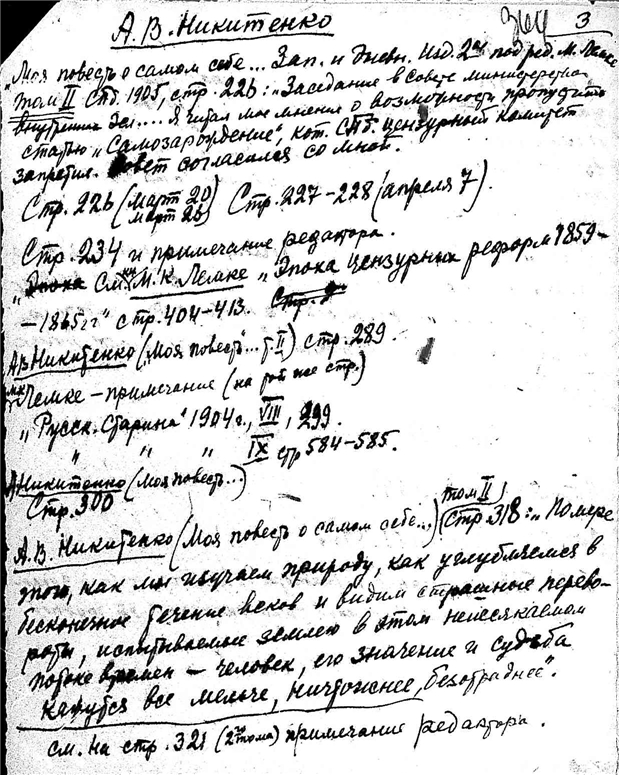 364 3
А. В. Никитенко
„Моя повесть о самом себе... Зап. и Дневн. Изд. 2ое под ред. М. Лемке
том II Спб. 1905, стр. 226: „Заседание в совете министерства
внутренних дел.... Я читал мое мнение о возможности пропустить
статью „Самозарождение", кот. СПб. цензурный комитет
запретил. Совет согласился со мной.
Стр. 226 (март 20) Стр. 227-228 (апреля 7).
март 26)
Стр. 234 и примечание редактора.
См. кн. М. К. Лемке „Эпоха цензурных реформ 1859-
-1865 гг" стр. 404-413.
АВ Никитенко („Моя повесть"... т. II) стр. 289.
МК Лемке - примечание (на той же стр.)
„Русск. Старина" 1904 г., VIII, 299.
„ „ „ IX стр 584-585.
А Никитенко (Моя повесть...)
Стр. 300
А. В. Никитенко (Моя повесть о самом себе...) том II) Стр. 318: „По мере
того, как мы изучаем природу, как углубляемся в
бесконечное течение веков и видим страшные перево-
роты, испытываемые землею в этом неиссякаемом
потоке времен - человек, его значение и судьба
кажутся все мельче, ничтожнее, безотраднее".
см. на стр. 321 (2го тома) примечание редактора.